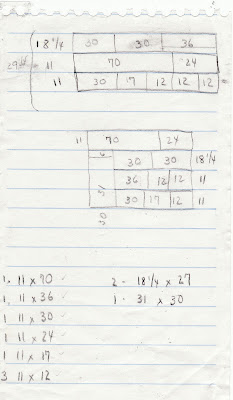 18 1/4 30 30 36
11 70 24
11 30 17 12 12 12
11 70 24
30 30 18 1/4
36 12 12 11
30 17 12 11
30
1. 11 x 70
1. 11 x 36
1 11 x 30
1 11 x 24
1 11 x 17
3 11 x 12
2 - 18 1/4 x 27
1 - 31 x 30